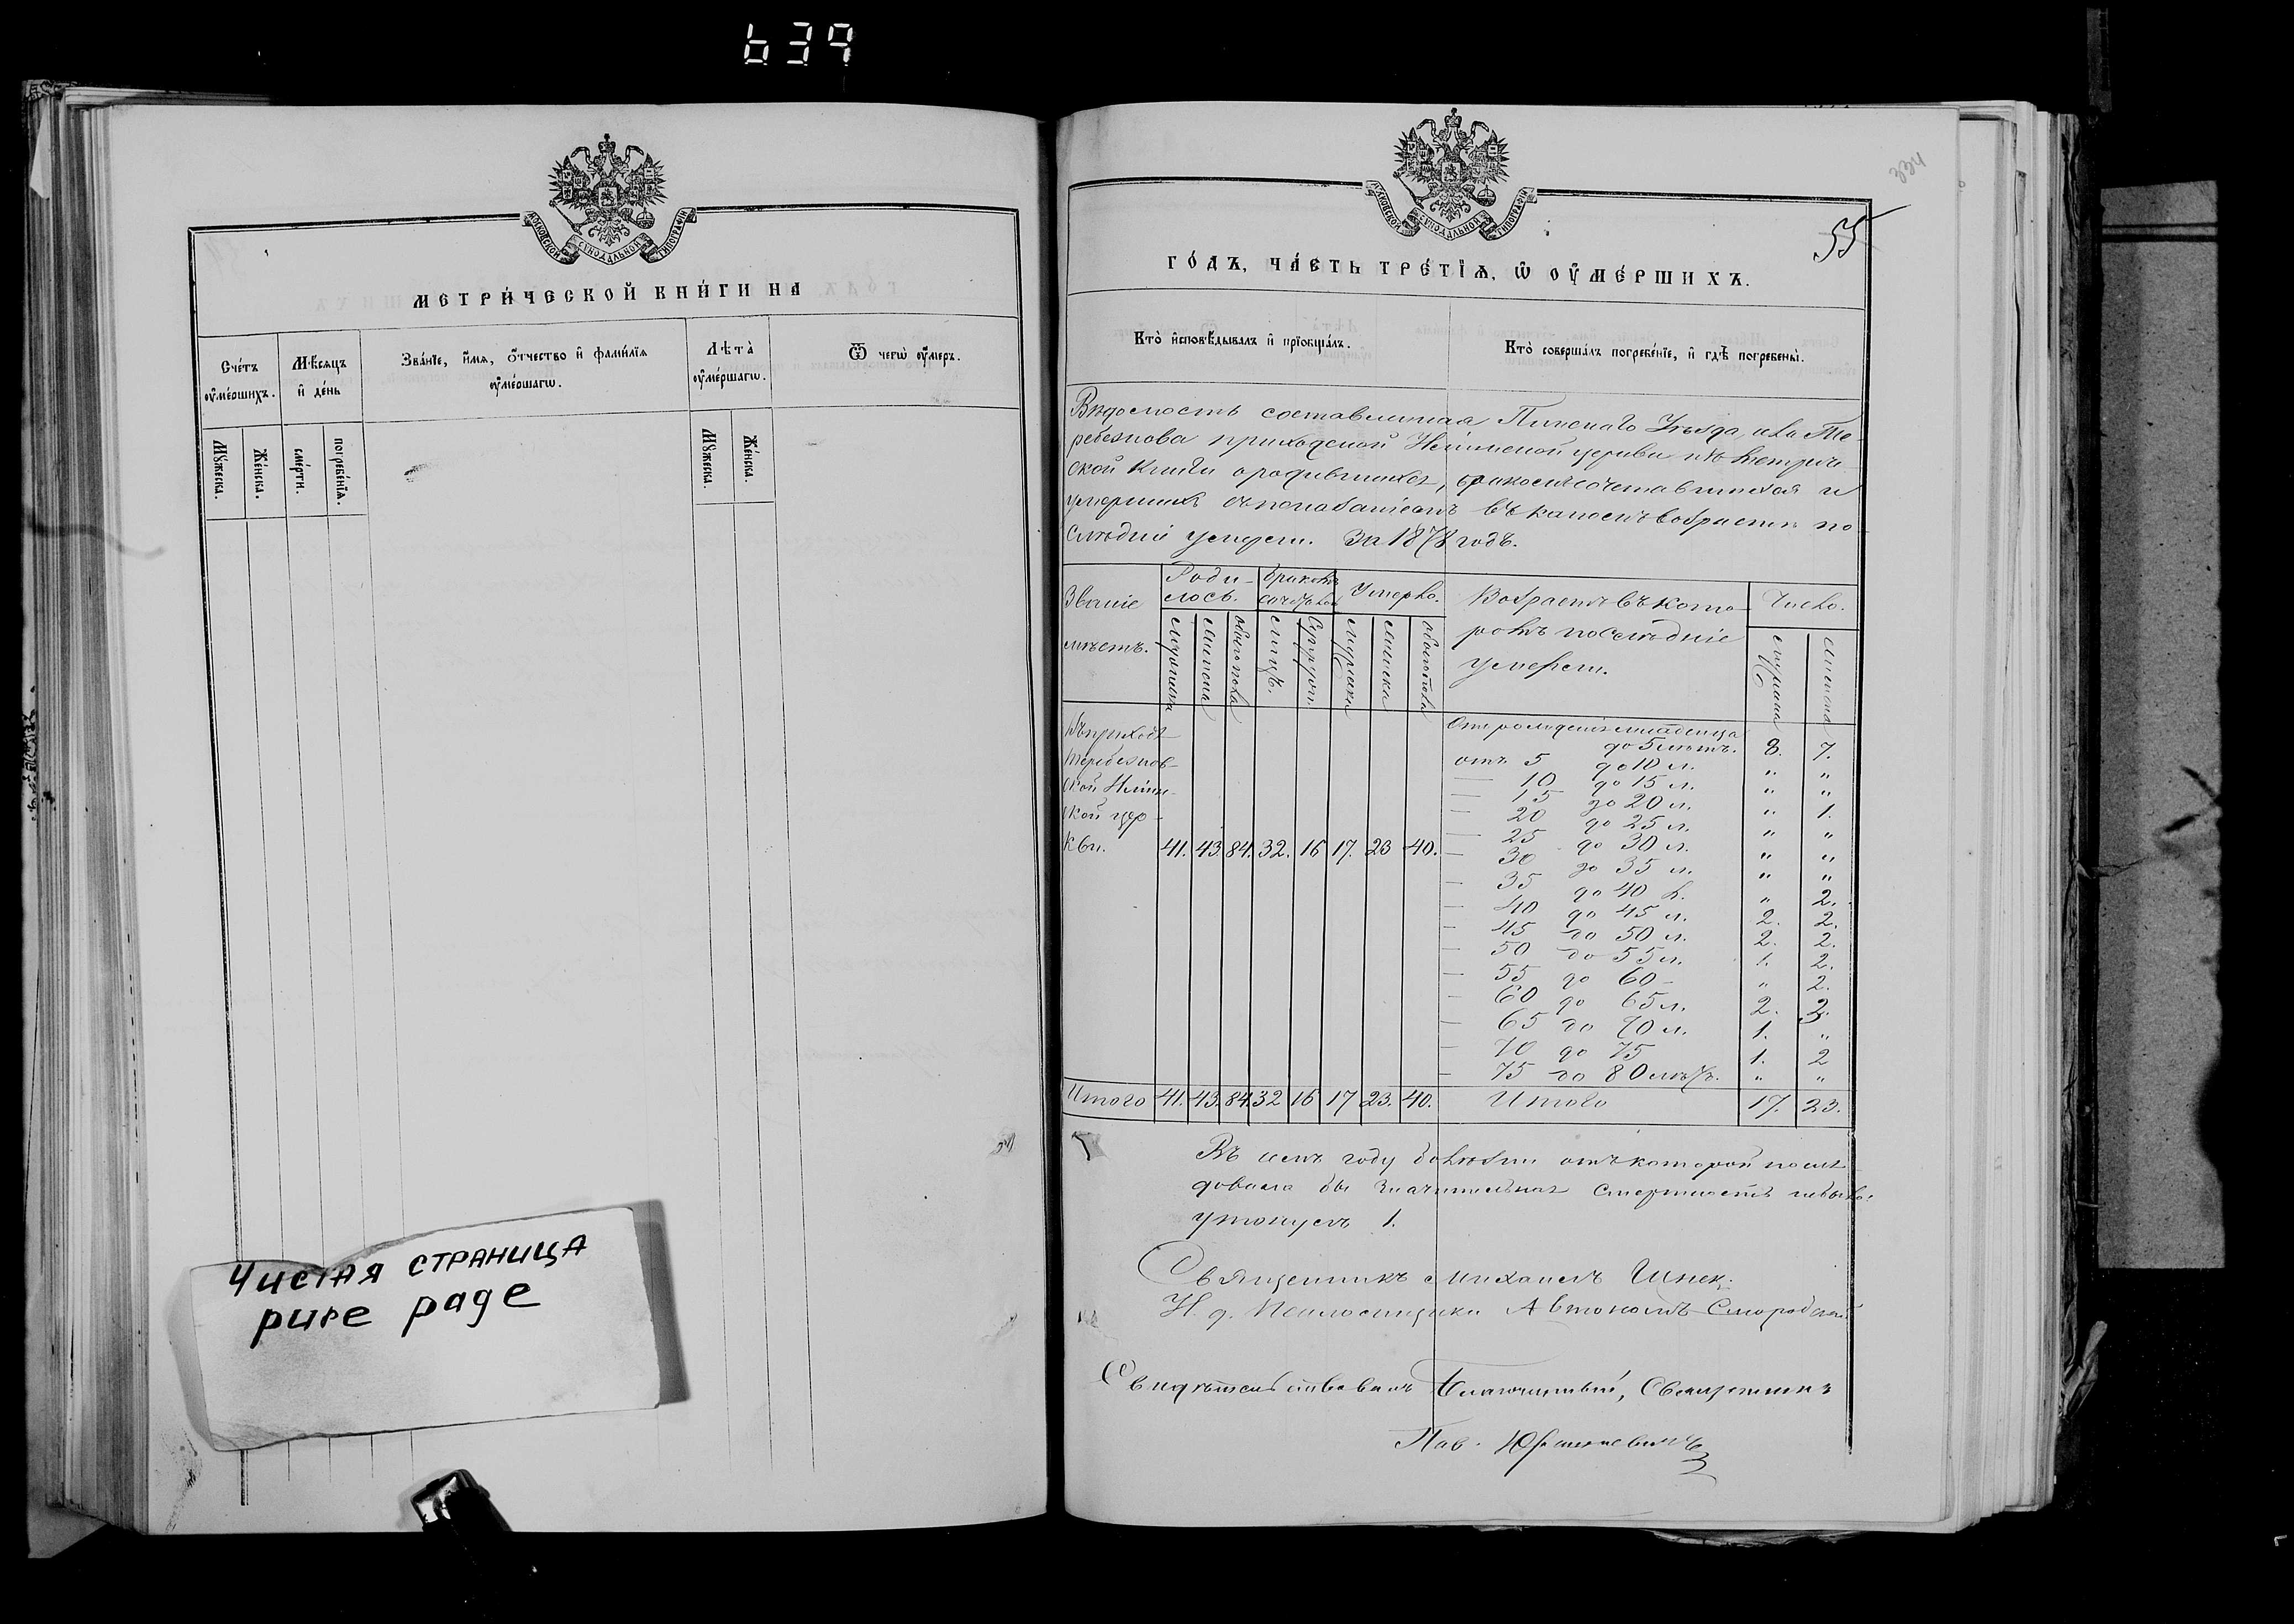 639
МОСКОВСКОЙ СѴНОДАЛЬНОЙ ТИПОГРАФІИ
МЕТРИ́ЧЕСКОЙ КНИ́ГИ НА
Сче́тъ ᲂу҆ме́ршихъ.
Мѣ́сяцъ и҆ де́нь
Зва́нїе, и҆́мѧ, ѻ҆́тчество и҆ фами́лїѧ ᲂу҆ме́ршагѡ.
Лѣта̀ ᲂу҆ме́ршагѡ.
Ѿ чегѡ̀ ᲂу҆́меръ.
Мꙋ́жеска.
Же́нска.
сме́рти.
погребе́нїѧ.
Мꙋ́жеска.
Же́нска.
Чистая страница
pure page
334
55
МОСКОВСКОЙ СѴНОДАЛЬНОЙ ТИПОГРАФІИ
ГО́ДЪ, ЧА́СТЬ ТРЕ́ТЇѦ, Ѡ҆ ОУ҆МЕ́РШИХЪ.
Кто̀ и҆сповѣ́дывалъ и҆ прїобща́лъ.
Кто̀ соверша́лъ погребе́нїе, и҆ гдѣ̀ погребены̀.
Вѣдомость составленная Пинскаго Уѣзда, села Те-
ребежова приходской церкви изъ Метриче-
ской книги о родившихся, бракомъ сочетавшихся и
умершихъ съ показаніемъ въ какомъ возрастѣ по-
слѣдніе умерли. За 1878 годъ.
Званіе мѣстъ.
Роди-
лось.
Бракомъ
Умерло.
Возрастъ въ кото-
ромъ послѣдніе
умерли.
Число.
мужеска
женска
обоего пола
лицъ.
мужеска
женска
обоего пола
мужеска
женска
Въ приходѣ
Теребежов-
ской
ской цер-
кви.
41. 43. 84. 32. 16 17. 23 40.
Отъ рожденія младенца
до 5 лѣтъ. 8. 7.
отъ 5 до 10 л. " "
— 10 до 15 л. " "
— 15 до 20 л. " 1.
— 20 до 25 л. " "
— 25 до 30 л. " "
— 30 до 35 л. " "
— 35 до 40 л. " 2.
— 40 до 45 л. 2. 2.
— 45 до 50 л. 2. 2.
— 50 до 55 л. 1. 2.
— 55 до 60 — " 2.
— 60 до 65 л. 2. 3.
— 65 до 70 л. 1. "
— 70 до 75 1. 2
— 75 до 80 лѣтъ. " "
Итого 41. 43. 84. 32 16 17 23. 40. Итого 17. 23.
Въ семъ году болѣзни отъ которой послѣ-
довала бы значительная смертность небыло.
утонулъ 1.
Священникъ Михаилъ
И. д. Псаломщика Автономъ
Свидѣтельствовалъ Благочинный, Священникъ
Пав. Юрашкевичъ